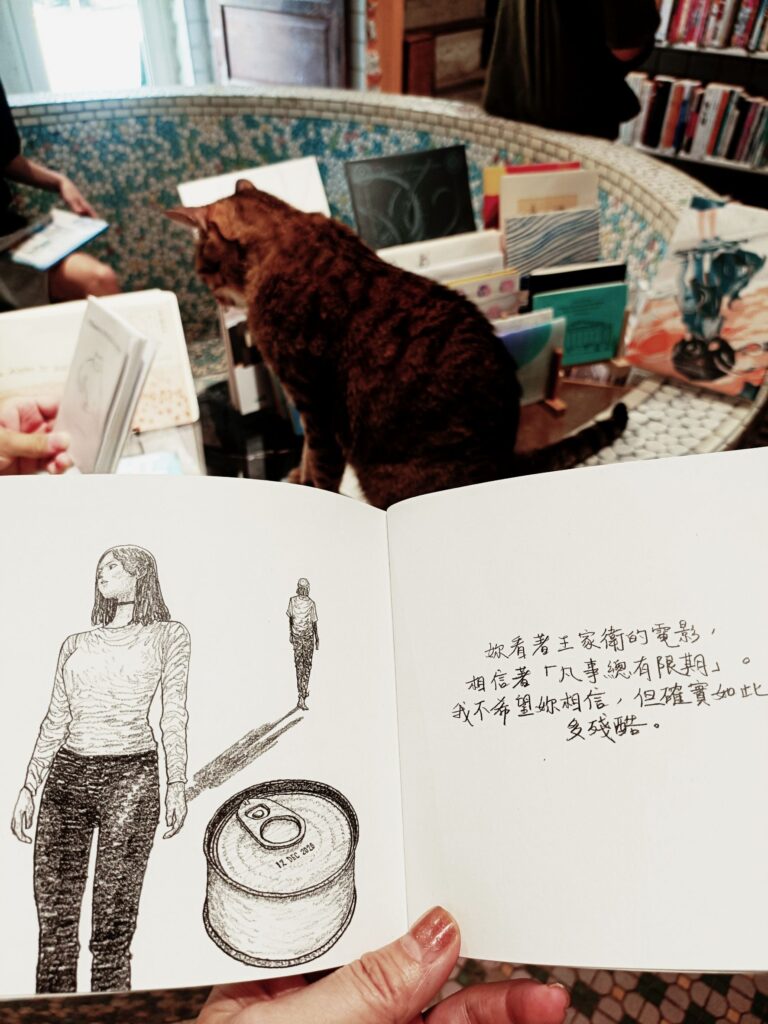 12 DEC 2020
妳看著王家衛的電影，
相信著「凡事總有限期」。
我不希望妳相信，但確實如此
多殘酷。